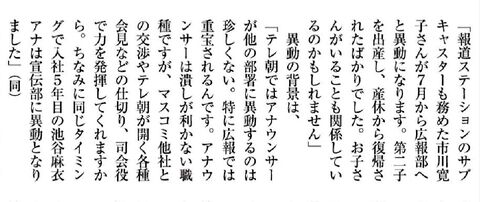 「報道ステーションのサブ
キャスターも務めた市川寛
子さんが7月から広報部へ
と異動になります。第二子
を出産し、産休から復帰さ
れたばかりでした。お子さ
んがいることも関係してい
るのかもしれません」
異動の背景は、
「テレ朝ではアナウンサー
が他の部署に異動するのは
珍しくない。特に広報では
重宝されるんです。アナウ
ンサーは潰しが利かない職
種ですが、マスコミ他社と
の交渉やテレ朝が開く各種
会見などの仕切り、司会役
で力を発揮してくれますか
ら。ちなみに同じタイミン
グで入社5年目の池谷麻衣
アナは宣伝部に異動となり
ました」（同）